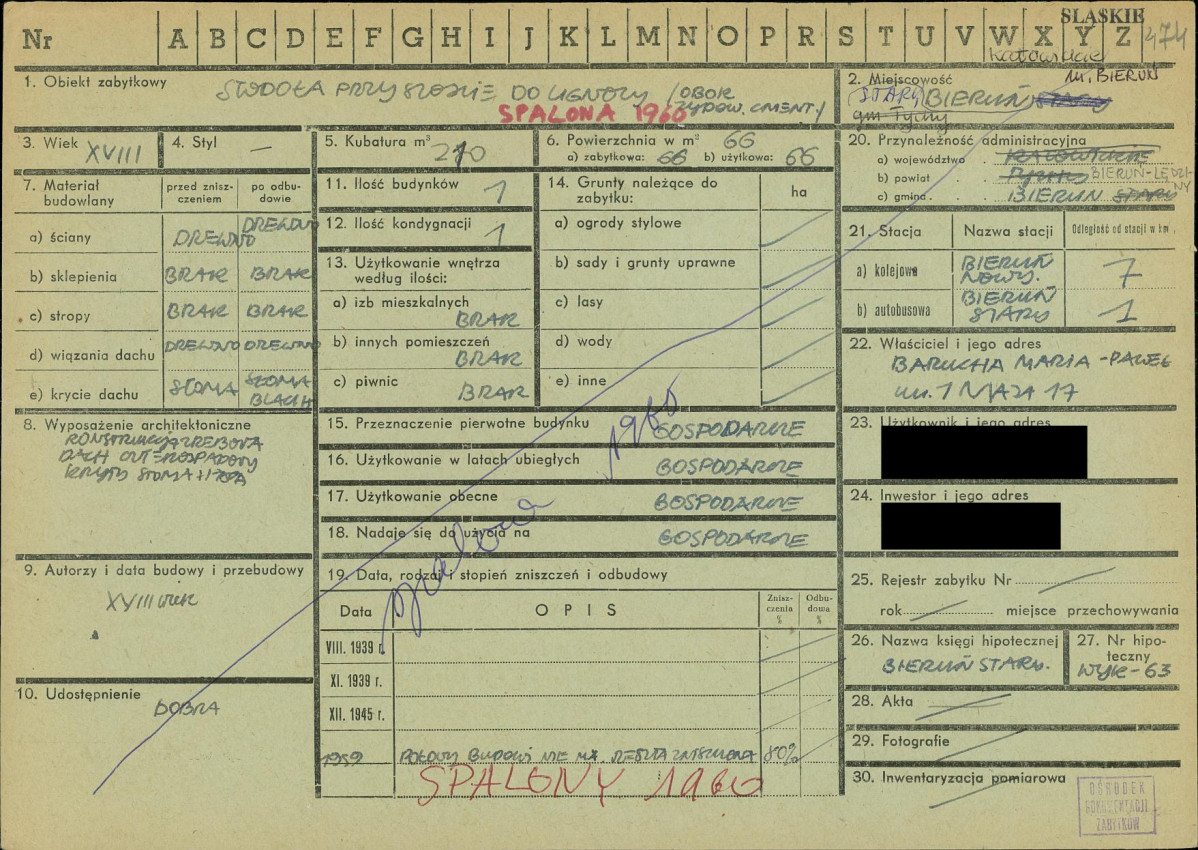 ŚLĄSKIE
Nr A B C D E F G H I J K L M N O P R S T U V W X Y Z 474
katowickie
1. Obiekt zabytkowy STODOŁA PRZY SZOSIE DO /OBOK
SPALONA 1960 ŻYDOW. CMENT./
2. Miejscowość m. BIERUŃ
STARY BIERUŃ STARY
gm Tychy
3. Wiek XVIII
4. Styl —
5. Kubatura m³ 210
6. Powierzchnia w m² 66
a) zabytkowa: 66 b) użytkowa: 66
7. Materiał budowlany
przed zniszczeniem
po odbudowie
a) ściany DREWNO DREWNO
b) sklepienia BRAK BRAK
c) stropy BRAK BRAK
d) wiązania dachu DREWNO DREWNO
e) krycie dachu SŁOMA SŁOMA
BLACH
8. Wyposażenie architektoniczne
KONSTRUKCJA ZRĘBOWA
DACH CZTEROSPADOWY
KRYTY SŁOMĄ
9. Autorzy i data budowy i przebudowy
XVIII wiek
10. Udostępnienie
DOBRA
11. Ilość budynków 1
12. Ilość kondygnacji 1
13. Użytkowanie wnętrza
według ilości:
a) izb mieszkalnych
BRAK
b) innych pomieszczeń
BRAK
c) piwnic
BRAK
14. Grunty należące do
zabytku:
ha
a) ogrody stylowe
b) sady i grunty uprawne
c) lasy
d) wody
e) inne
15. Przeznaczenie pierwotne budynku GOSPODARCZE
16. Użytkowanie w latach ubiegłych GOSPODARCZE
17. Użytkowanie obecne GOSPODARCZE
18. Nadaje się do użycia na GOSPODARCZE
spalona 1960
19. Data, rodzaj i stopień zniszczeń i odbudowy
Data OPIS Zniszczenia % Odbudowa %
VIII. 1939 r.
XI. 1939 r.
XII. 1945 r.
1959 POŁOWY BUDOWLI NIE MA. RESZTA ZNISZCZONA 80%
SPALONY 1960
20. Przynależność administracyjna
a) województwo KATOWICKIE
b) powiat TYCHY BIERUŃ-LĘDZINY
c) gmina BIERUŃ STARY
21. Stacja Nazwa stacji Odległość od stacji w km
a) kolejowa BIERUŃ
NOWY. 7
b) autobusowa BIERUŃ
STARY 1
22. Właściciel i jego adres
BARUCHA MARIA - PAWEŁ
UL. 1 MAJA 17
23. Użytkownik i jego adres
24. Inwestor i jego adres
25. Rejestr zabytku Nr
rok miejsce przechowywania
26. Nazwa księgi hipotecznej
BIERUŃ STARY.
27. Nr hipoteczny
WYK-63
28. Akta
29. Fotografie
30. Inwentaryzacja pomiarowa
OŚRODEK
DOKUMENTACJI
ZABYTKÓW